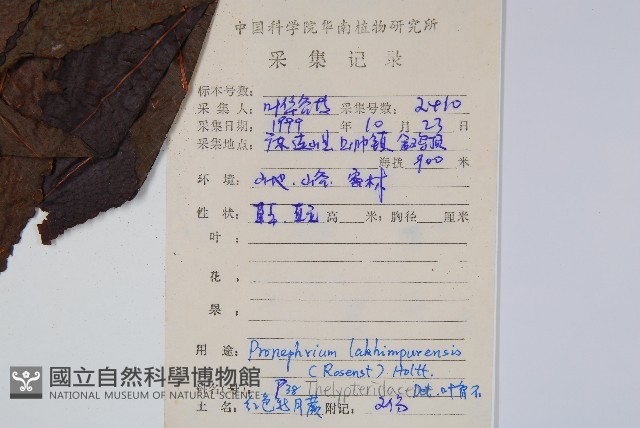 中国科学院华南植物研究所
采集记录
标本号数:
采集人: 叶华谷 采集号数: 2410
采集日期: 1999 年 10 月 23 日
采集地点: 连山 上帅镇
海拨 900 米
环境: 山地.山谷.密林
性状: 直立 高 米; 胸径 厘米
叶:
花,
果:
用途: Pronephrium lakhimpurensis
(Rosenst) Holtt.
P38 Thelypteridaceae Det. 叶育石
土名: 红色新月蕨 附记: 2份
國立自然科學博物館
NATIONAL MUSEUM OF NATURAL SCIENCE